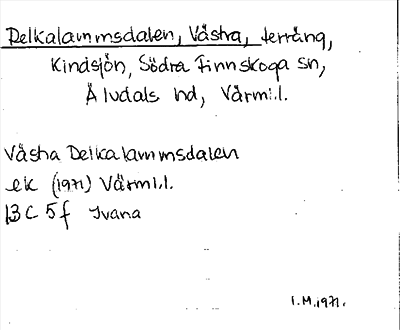 Delkalammsdalen, Västra, terräng,
Kindsjön, Södra Finnskoga sn,
Älvdals hd, Värml.l.
Västra Delkalammsdalen
ek (1971) Värml.l.
13 C 5 f Ivana
I.M. 1971.